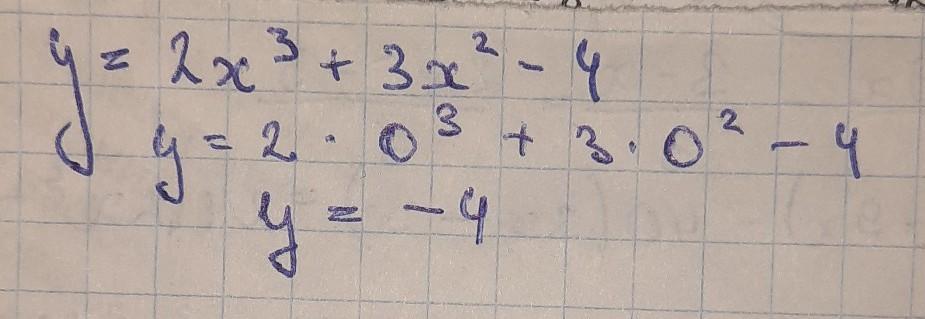 y = 2x³ + 3x² - 4
y = 2 · 0³ + 3 · 0² - 4
y = -4